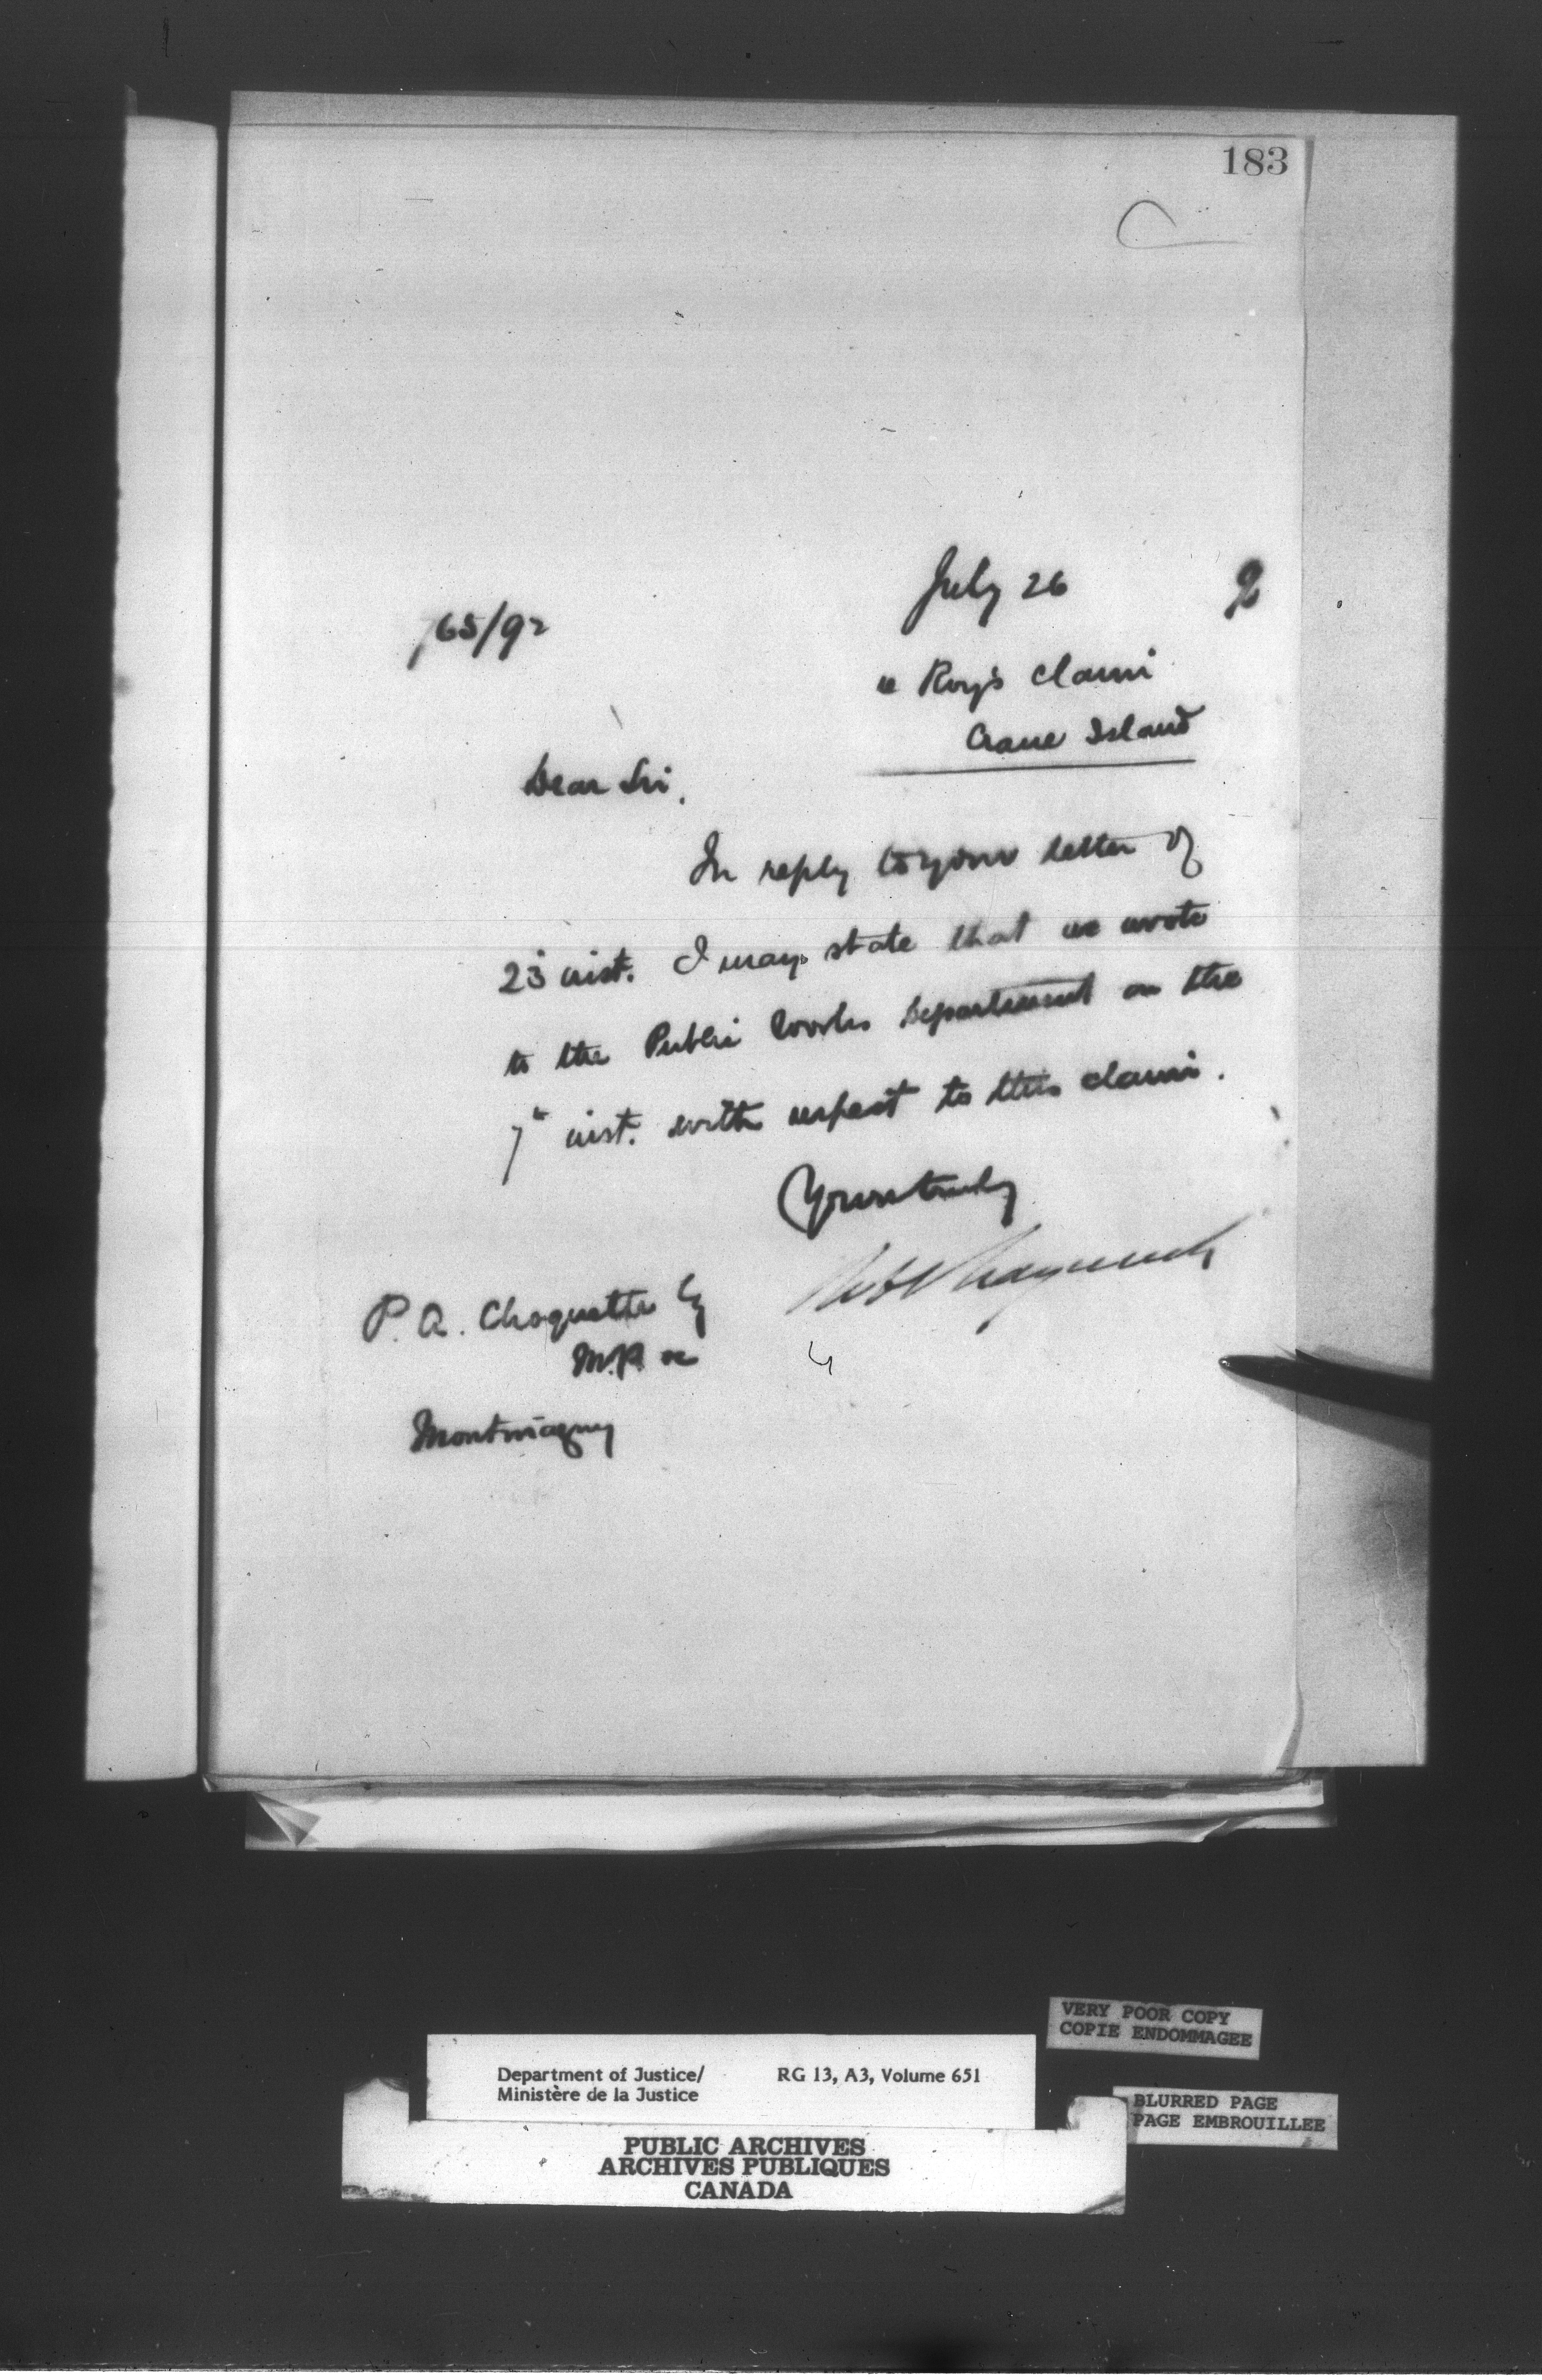 183
July 26 2
765/92
re Roy's claim
Crane Island
Dear Sir,
In reply to your letter of
23 inst. I may state that we wrote
to the Public Works Department on the
7th inst. with respect to this claim.
Yours truly
P. A. Choquette Esq
M.P. &c
Montmagny
VERY POOR COPY
COPIE ENDOMMAGEE
Department of Justice/ RG 13, A3, Volume 651
Ministère de la Justice
BLURRED PAGE
PAGE EMBROUILLEE
PUBLIC ARCHIVES
ARCHIVES PUBLIQUES
CANADA